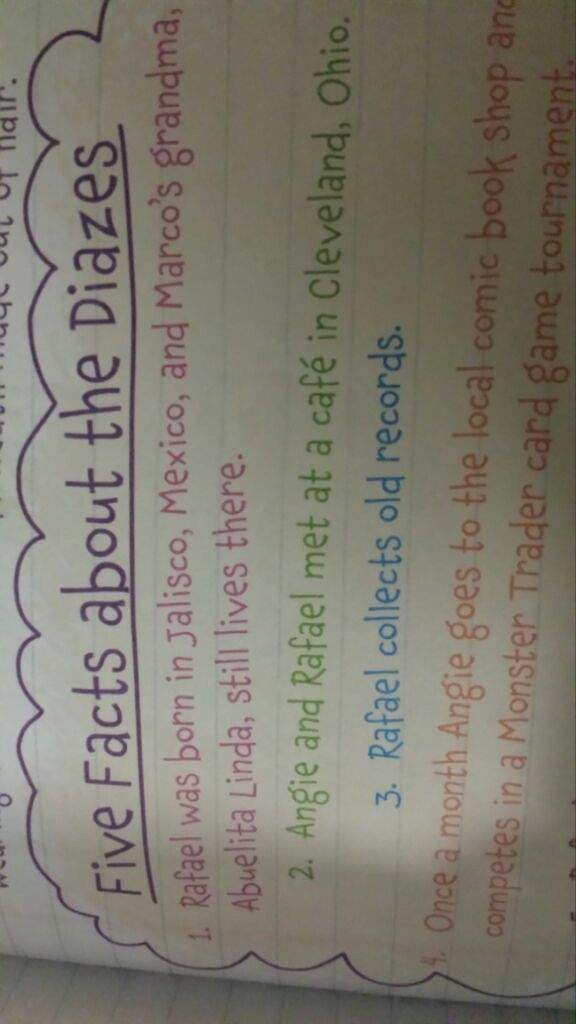 Five Facts about the Diazes
1. Rafael was born in Jalisco, Mexico, and Marco's grandma,
Abuelita Linda, still lives there.
2. Angie and Rafael met at a café in Cleveland, Ohio.
3. Rafael collects old records.
4. Once a month Angie goes to the local comic book shop and
competes in a Monster Trader card game tournament.